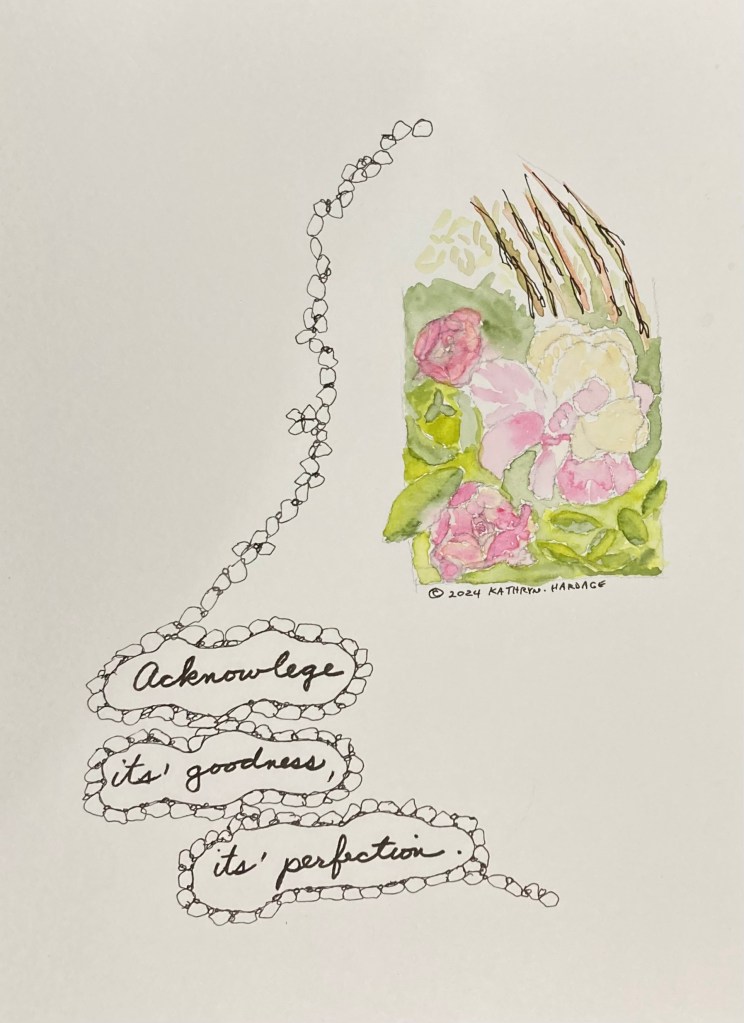 © 2024 KATHRYN. HARDAGE
Acknowlege
its' goodness,
its' perfection.